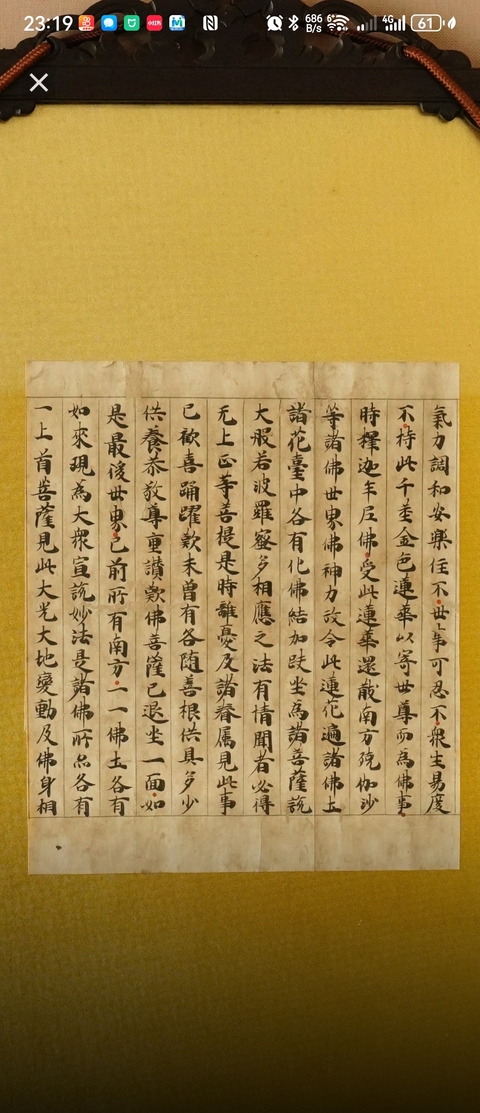 23:19 686 B/s 6 4G 61
氣力調和安樂住不世事可忍不衆生易度
不持此千莖金色蓮華以寄世尊而為佛事
時釋迦牟尼佛受此蓮華還散南方殑伽沙
等諸佛世界佛神力故令此蓮花遍諸佛土
諸花臺中各有化佛結加趺坐為諸菩薩說
大般若波羅蜜多相應之法有情聞者必得
无上正等菩提是時離憂及諸眷屬見此事
已歡喜踊躍歎未曾有各随善根供具多少
供養恭敬尊重讚歎佛菩薩已退坐一面如
是最後世界已前所有南方一一佛土各有
如來現為大衆宣說妙法是諸佛所亦各有
一上首菩薩見此大光大地變動及佛身相